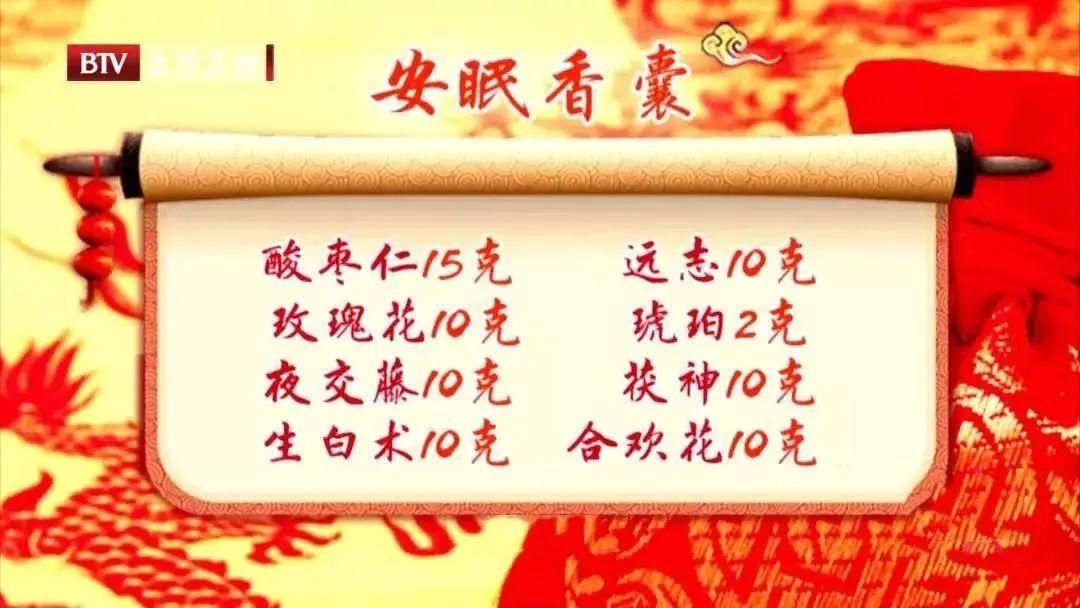 BTV
安眠香囊
酸枣仁15克 远志10克
玫瑰花10克 琥珀2克
夜交藤10克 茯神10克
生白术10克 合欢花10克